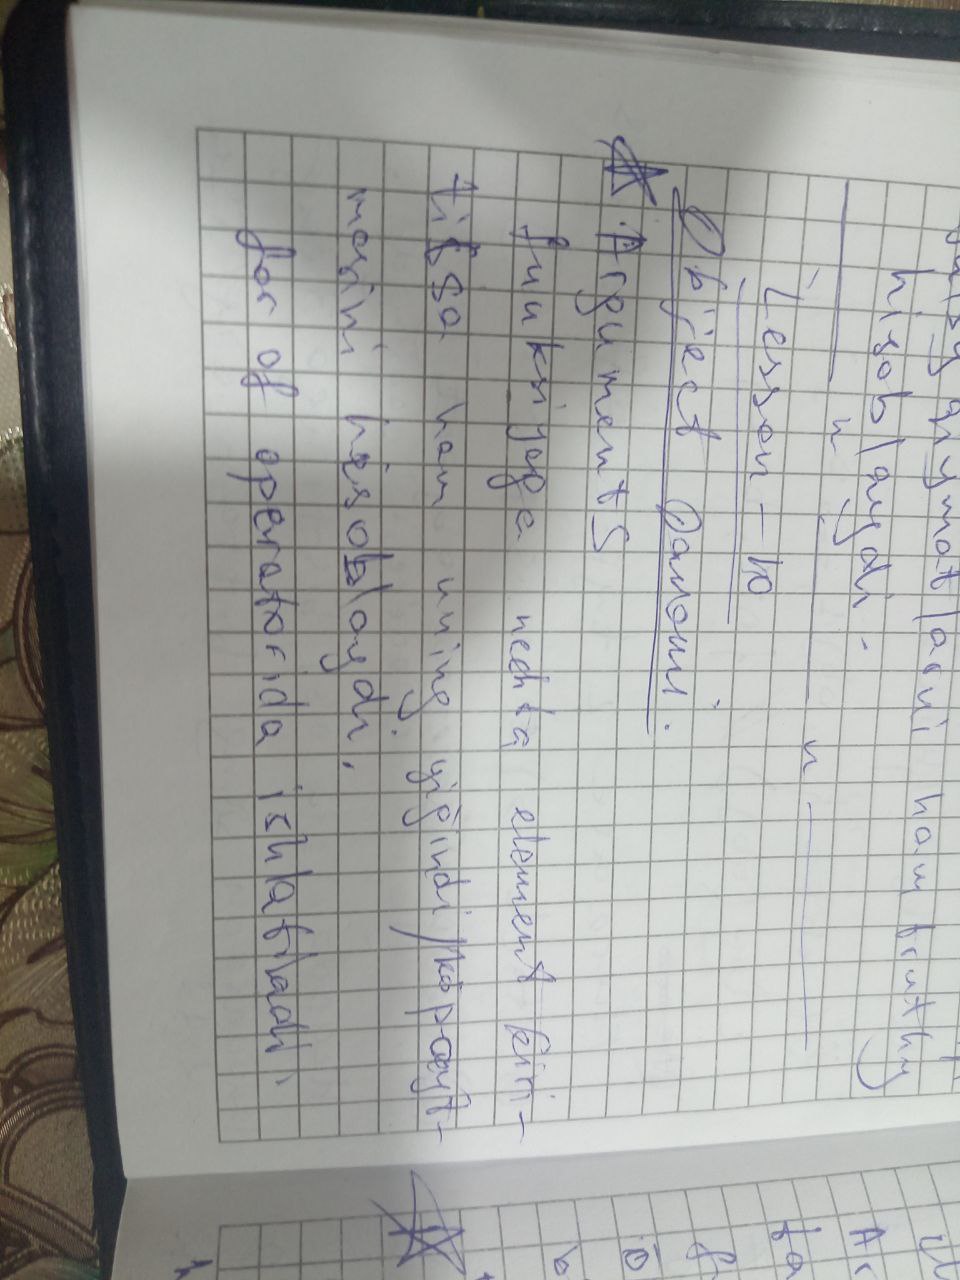 qiymatlarni ham truthy
hisoblaydi.
Lesson-10
Object Davomi.
Arguments
funksiyaga nechta element kiri-
tilsa ham uning yig'indi/ko'payt-
masini hisoblaydi.
for of operatorida ishlatiladi